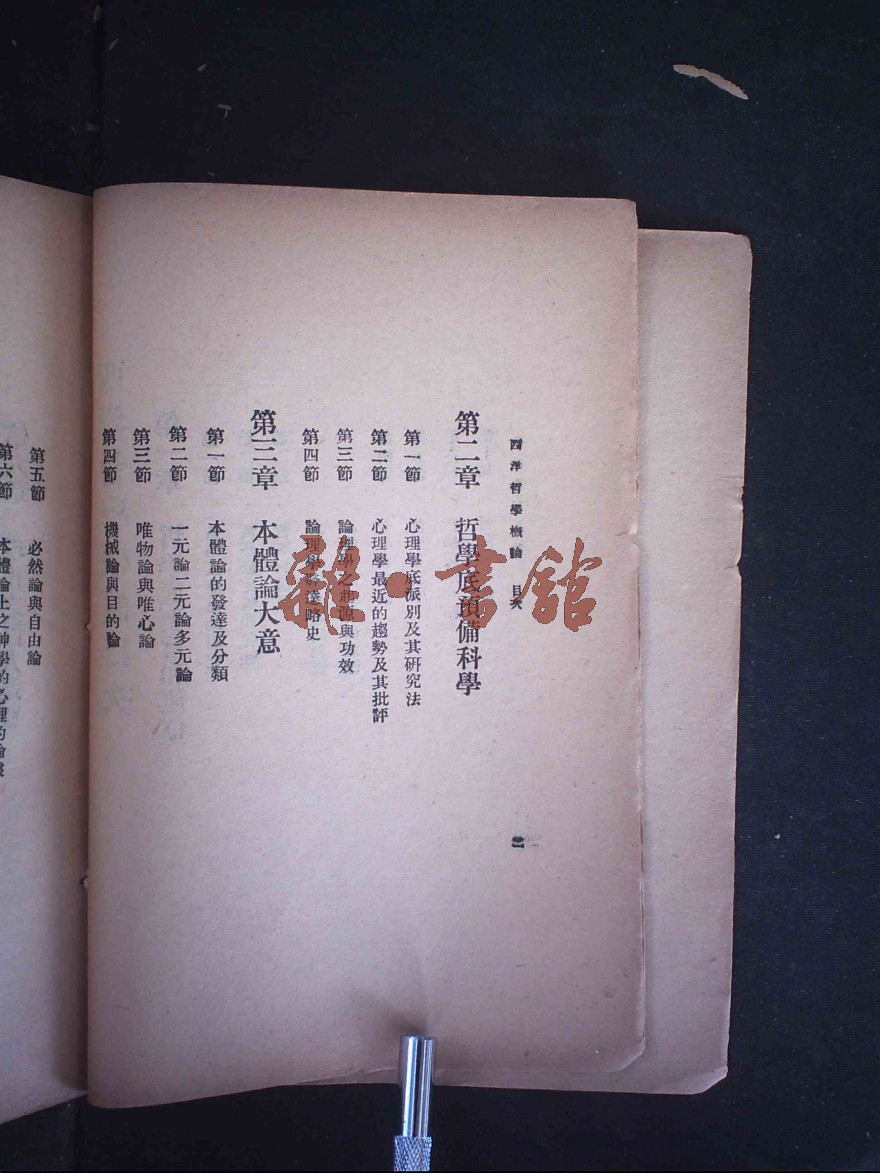 西洋哲學概論　目次
二
第二章　哲學底預備科學
第一節　心理學底派別及其研究法
第二節　心理學最近的趨勢及其批評
第三節　論理學之起源與功效
第四節　論理學發達略史
第三章　本體論大意
第一節　本體論的發達及分類
第二節　一元論二元論多元論
第三節　唯物論與唯心論
第四節　機械論與目的論
第五節　必然論與自由論
第六節　本體論上之神學的心理的論
雜·書館